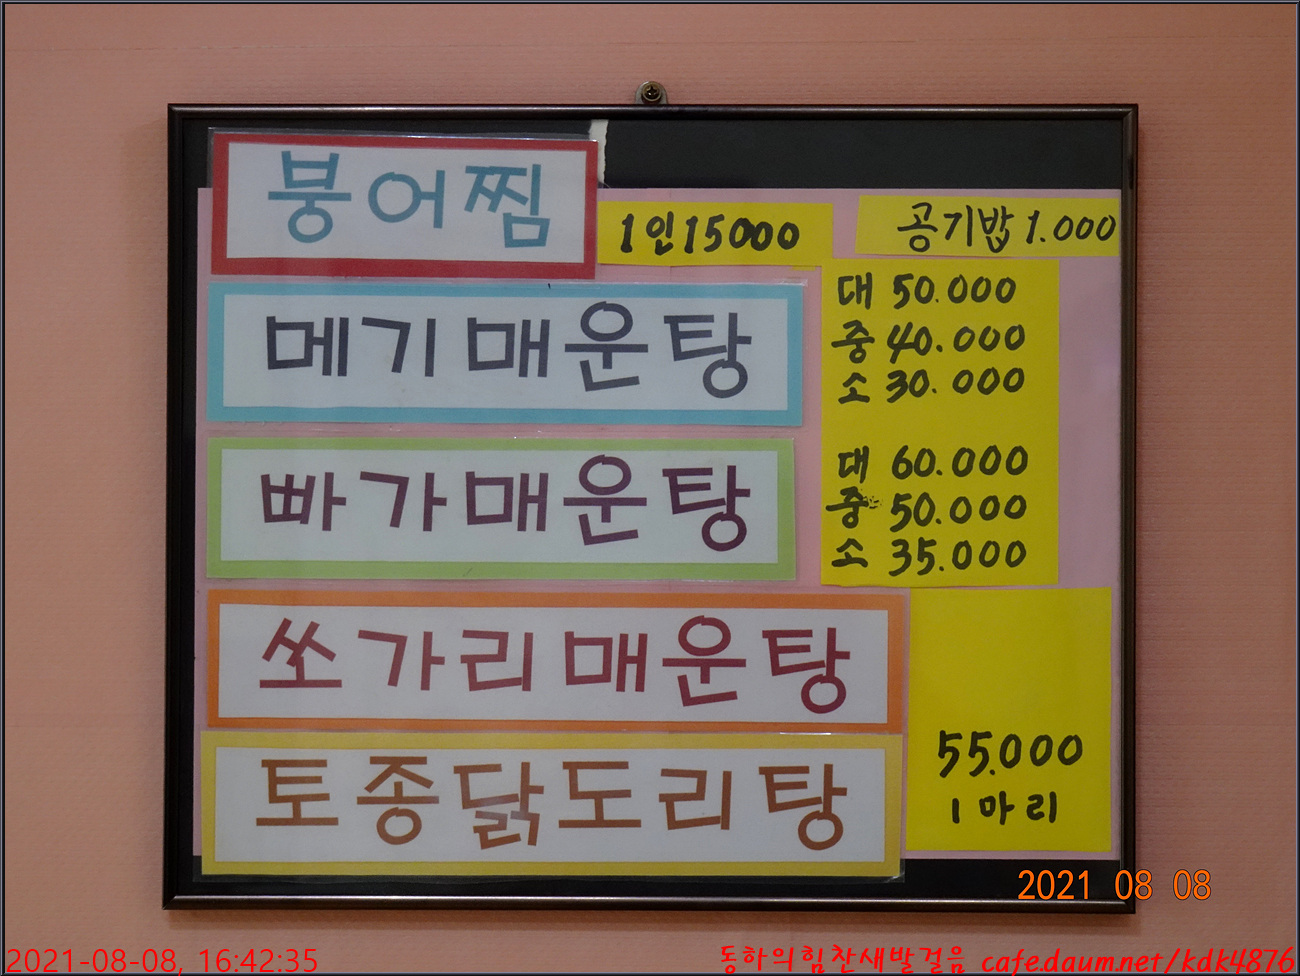 붕어찜 1인 15000 공기밥 1.000
메기매운탕
대 50.000
중 40.000
소 30.000
빠가매운탕
대 60.000
중 50.000
소 35.000
쏘가리매운탕
토종닭도리탕
55.000
1마리
2021 08 08
2021-08-08, 16:42:35
동하의힘찬새발걸음 cafe.daum.net/kdk4876